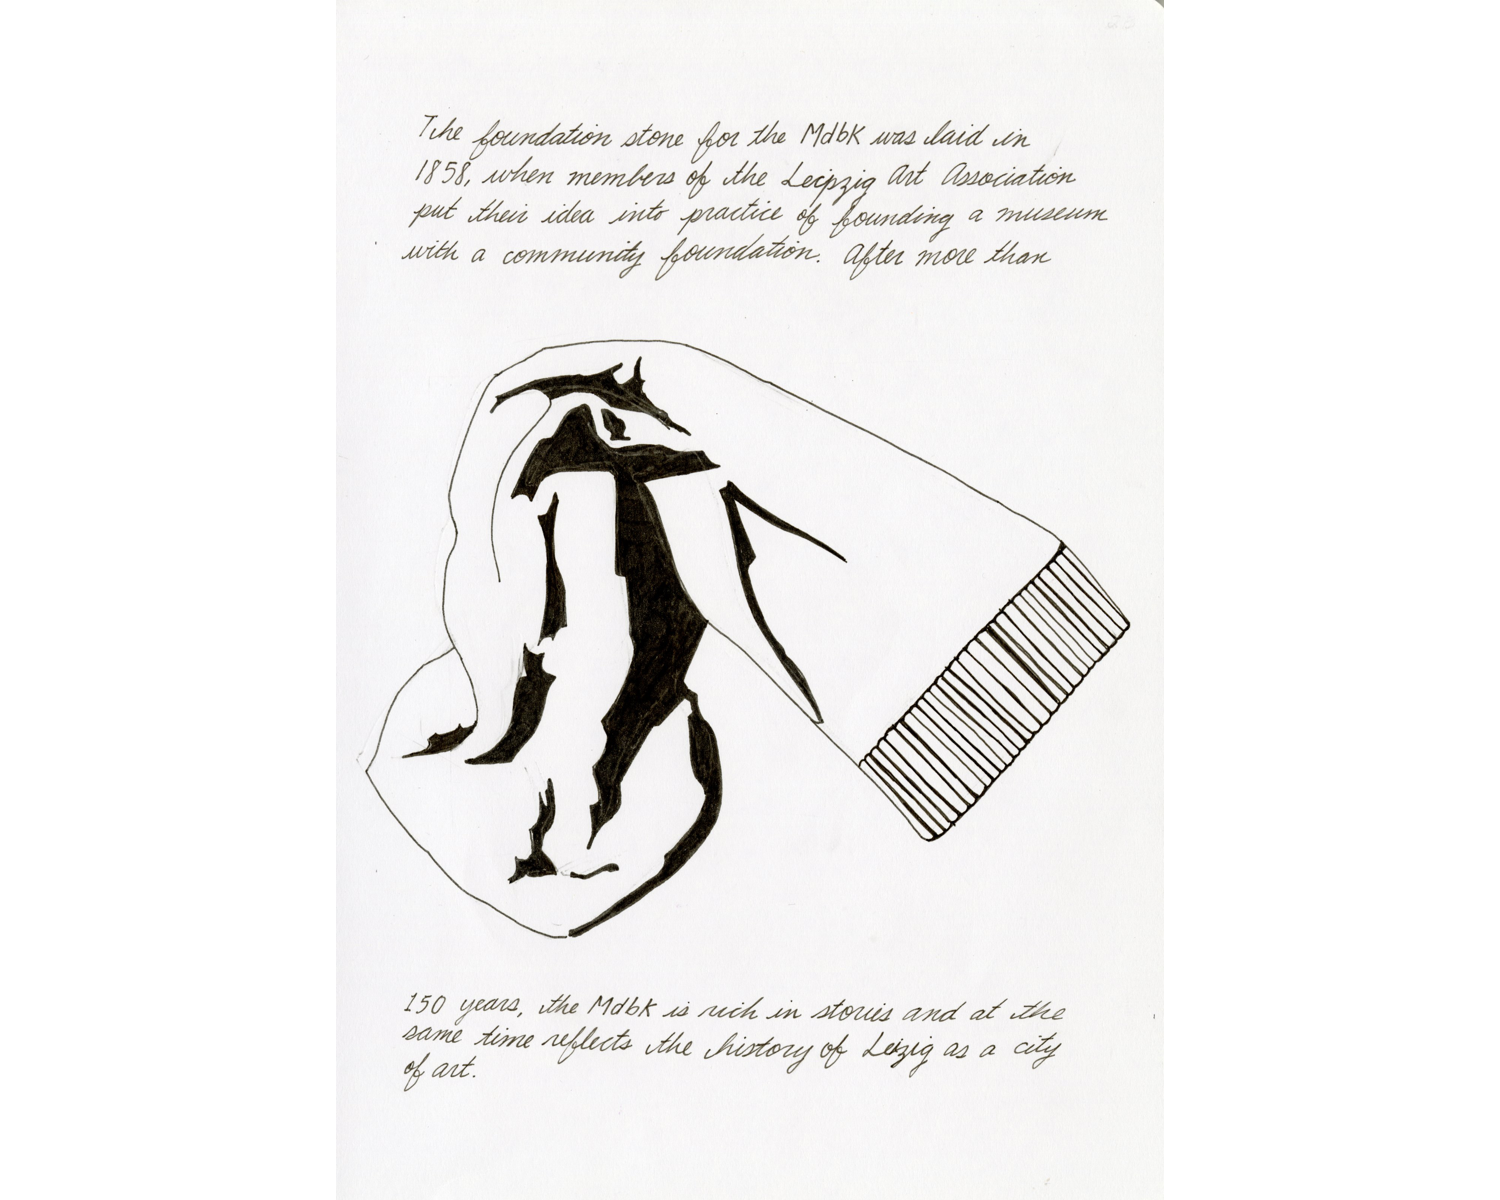 The foundation stone for the MdbK was laid in
1858, when members of the Leipzig Art Association
put their idea into practice of founding a museum
with a community foundation. After more than
150 years, the MdbK is rich in stories and at the
same time reflects the history of Leizig as a city
of art.